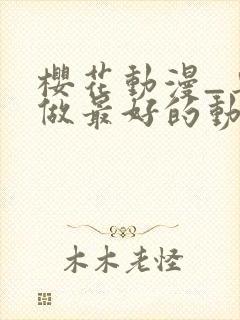 櫻花動漫_
做最好的動
木木老怪